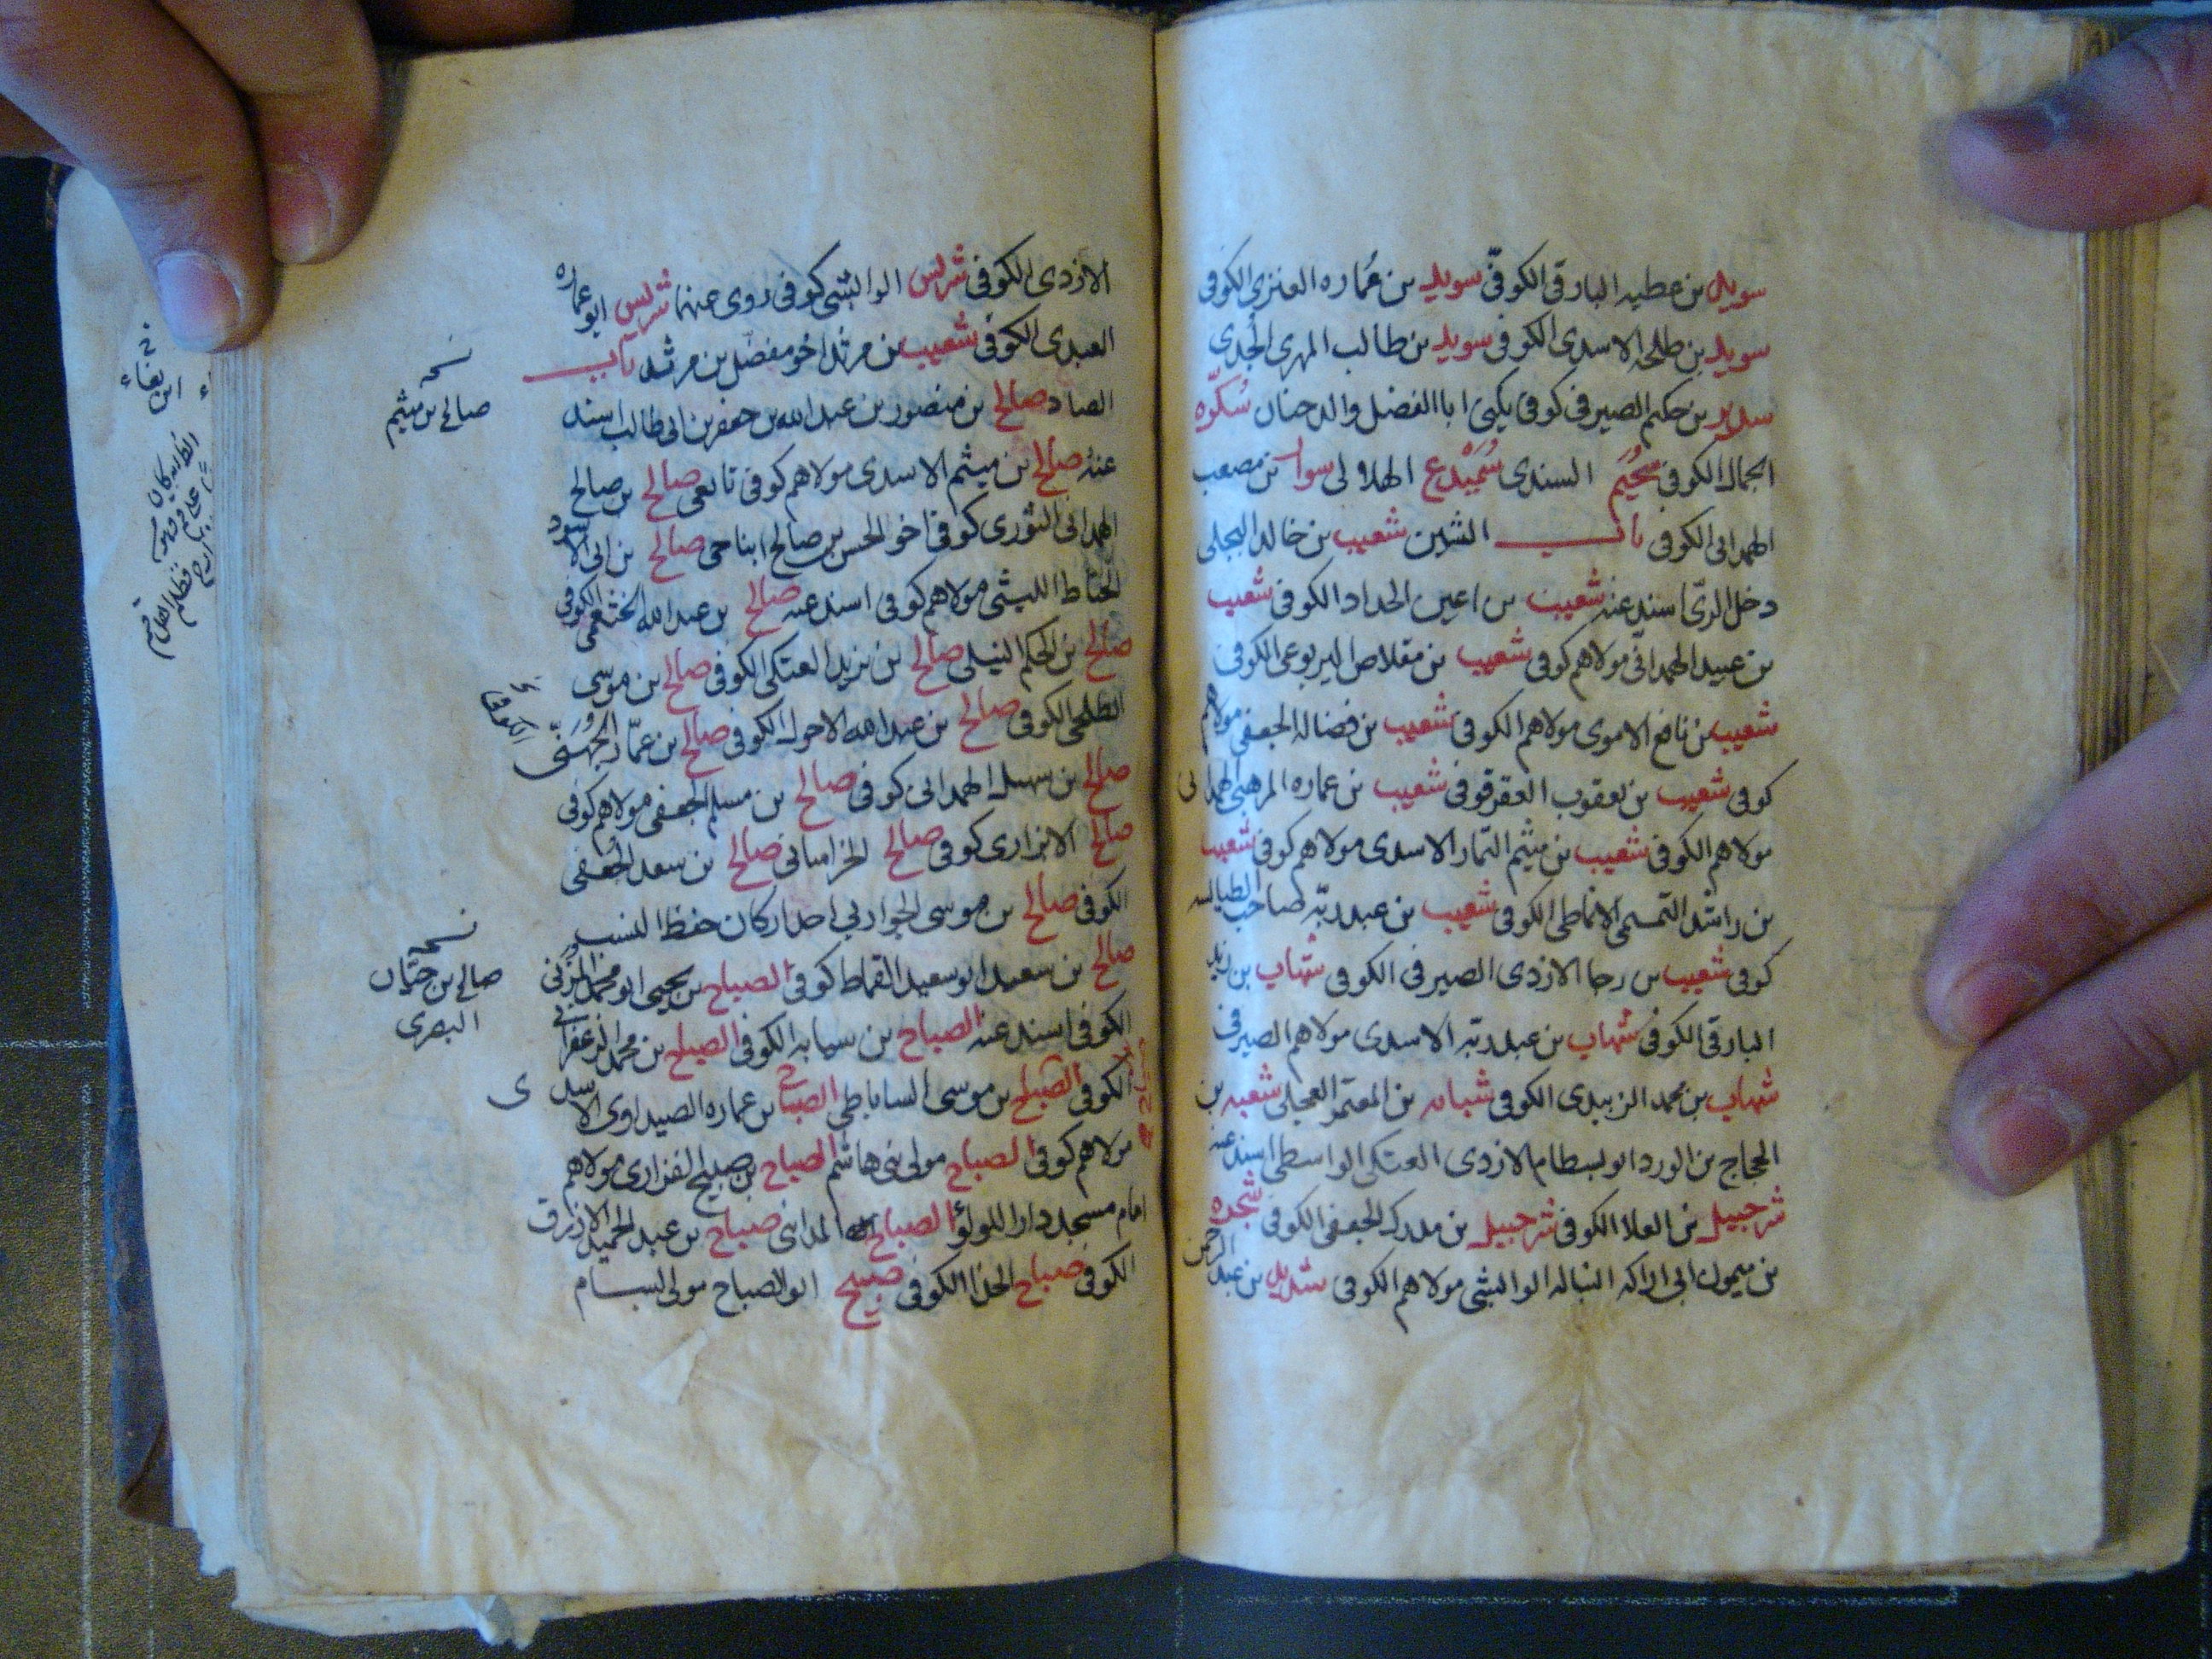 سويد بن عطيه البارقى الكوفىّ سويد بن عُماره العنزى الكوفى
سويد بن طلحه الاسدى الكوفى سويد بن طالب المهرى الجُدى
سدير بن حكيم الصيرفى كوفى يكنى ابا الفضل والد حنان سُكّره
الجمال الكوفى سُحَيم السندى سُمَيْدع الهلالى سوار بن مصعب
الهمدانى الكوفى باب الشين شعيب بن خالد البجلى
دخل الرىّ اسند عنه شعيب بن اعين الحداد الكوفى شعيب
بن عبيد الهمدانىّ مولاهم كوفى شعيب بن مقلاص اليربوعى الكوفى
شعيب بن نافع الاموى مولاهم الكوفى شعيب بن فضاله الجعفى مولاهم
كوفى شعيب بن يعقوب العقرقوفى شعيب بن عماره المرهبى الهمدانى
مولاهم الكوفى شعيب بن ميثم التمار الاسدى مولاهم كوفى شعيب
بن راشد التميمى الانماطى الكوفى شعيب بن عبد ربّه صاحب الطيالسه
كوفى شعيب بن رجا الازدى الصيرفى الكوفى شهاب بن زيد
البارقى الكوفى شهاب بن عبد ربّه الاسدى مولاهم الصيرفى
شهاب بن محمد الزبيدى الكوفى شبابه بن المعتمر العجلى شعبه بن
الحجاج بن الورد ابو بسطام الازدى العتكى الواسطى اسند عنه
شرحبيل بن العلا الكوفى شرحبيل بن مدرك الجعفى الكوفى شجره
بن ميمون ابى اراكه النباله الوابشى مولاهم الكوفى شديد بن عبد الرحمن
الازدى الكوفى شريس الوابشى كوفى روى عنهما شريس ابو عماره
العبدى الكوفى شعيب بن مرثد اخو مفضّل بن مرثد باب
الصاد صالح بن منصور بن عبد الله بن جعفر بن ابى طالب اسند
نسخه
صالح بن ميثم
عنه صالح بن ميثم الاسدى مولاهم كوفى تابعى صالح بن صالح
الهمدانى الثورى كوفى اخو الحسن بن صالح ابنا حى صالح بن ابى الاسود
الحناط الليثى مولاهم كوفى اسند عنه صالح بن عبد الله الخثعمى الكوفى
صالح بن الحكم النيلى صالح بن يزيد العتكى الكوفى صالح بن موسى
الطلحى الكوفى صالح بن عبد الله الاحول الكوفى صالح بن عمّار الجُهنى
الكوفى
صالح بن سهل الهمدانى كوفى صالح بن مسلم الجعفى مولاهم كوفى
صالح الابزارى كوفى صالح صالح بن سعد الجعفى
الكوفى صالح بن موسى الجواربى حفظ النسب
صالح بن سعيد ابو سعيد القماط كوفى الصباح بن يحيى ابو محمد المزنى
نسخه
صالح بن حيّان
البصرى
الكوفى اسند عنه الصباح بن سيابه الكوفى الصباح بن محمد الزعفرانى
الكوفى الصباح بن موسى الساباطى الصباح بن عماره الصيداوى الاسدى
مولاهم كوفى الصباح مولى بنى هاشم الصباح بن صبيح الفزارى مولاهم
امام مسجد دار اللولؤ الصباح المدائنى صباح بن عبد الحميد الازرق
الكوفى صباح الحذا الكوفى صبيح ابو الصباح مولى بسام